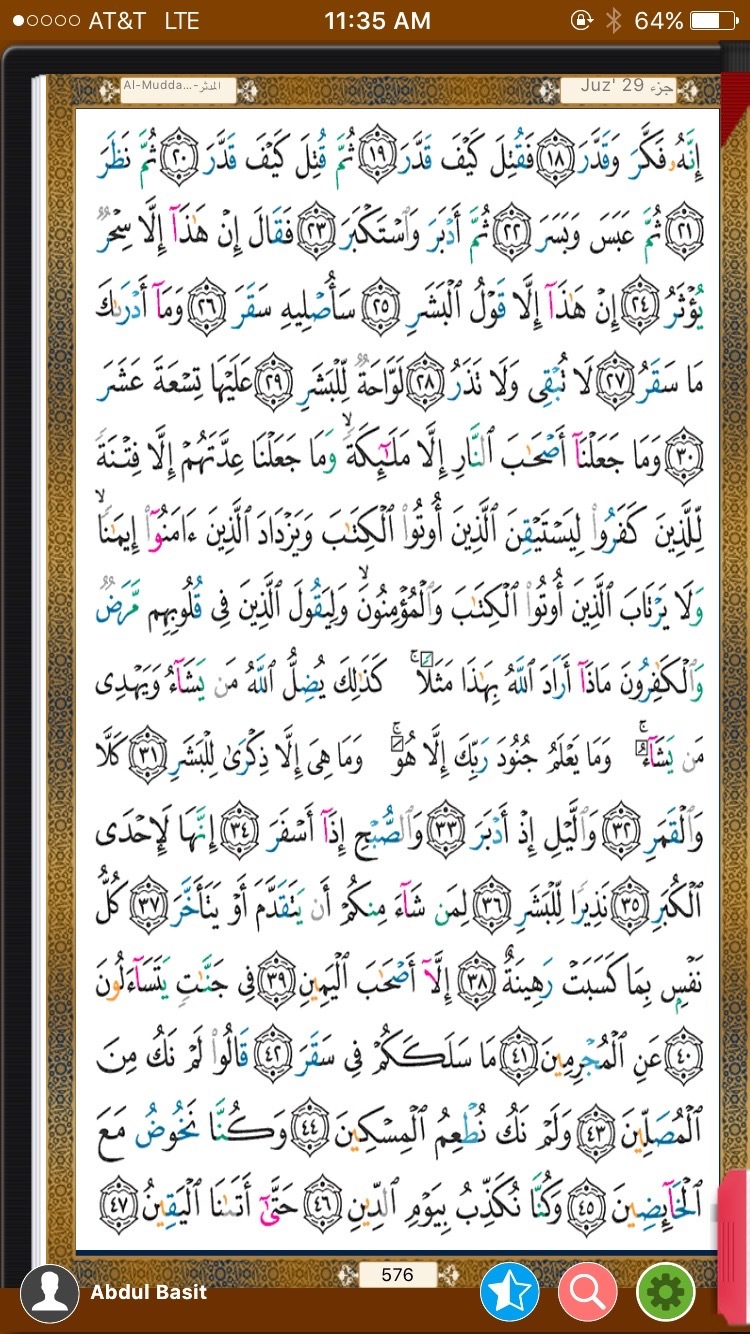 ●○○○○ AT&T LTE 11:35 AM 64%
Al-Mudda...-المدثر
Juz' 29 جزء
إِنَّهُۥ فَكَّرَ وَقَدَّرَ ١٨ فَقُتِلَ كَيْفَ قَدَّرَ ١٩ ثُمَّ قُتِلَ كَيْفَ قَدَّرَ ٢٠ ثُمَّ نَظَرَ
٢١ ثُمَّ عَبَسَ وَبَسَرَ ٢٢ ثُمَّ أَدْبَرَ وَٱسْتَكْبَرَ ٢٣ فَقَالَ إِنْ هَٰذَآ إِلَّا سِحْرٌ
يُؤْثَرُ ٢٤ إِنْ هَٰذَآ إِلَّا قَوْلُ ٱلْبَشَرِ ٢٥ سَأُصْلِيهِ سَقَرَ ٢٦ وَمَآ أَدْرَىٰكَ
مَا سَقَرُ ٢٧ لَا تُبْقِى وَلَا تَذَرُ ٢٨ لَوَّاحَةٌ لِّلْبَشَرِ ٢٩ عَلَيْهَا تِسْعَةَ عَشَرَ
٣٠ وَمَا جَعَلْنَآ أَصْحَٰبَ ٱلنَّارِ إِلَّا مَلَٰٓئِكَةً ۙ وَمَا جَعَلْنَا عِدَّتَهُمْ إِلَّا فِتْنَةً
لِّلَّذِينَ كَفَرُوا۟ لِيَسْتَيْقِنَ ٱلَّذِينَ أُوتُوا۟ ٱلْكِتَٰبَ وَيَزْدَادَ ٱلَّذِينَ ءَامَنُوٓا۟ إِيمَٰنًا ۙ
وَلَا يَرْتَابَ ٱلَّذِينَ أُوتُوا۟ ٱلْكِتَٰبَ وَٱلْمُؤْمِنُونَ ۙ وَلِيَقُولَ ٱلَّذِينَ فِى قُلُوبِهِم مَّرَضٌ
وَٱلْكَٰفِرُونَ مَاذَآ أَرَادَ ٱللَّهُ بِهَٰذَا مَثَلًا ۚ كَذَٰلِكَ يُضِلُّ ٱللَّهُ مَن يَشَآءُ وَيَهْدِى
مَن يَشَآءُ ۚ وَمَا يَعْلَمُ جُنُودَ رَبِّكَ إِلَّا هُوَ ۚ وَمَا هِىَ إِلَّا ذِكْرَىٰ لِلْبَشَرِ ٣١ كَلَّا
وَٱلْقَمَرِ ٣٢ وَٱلَّيْلِ إِذْ أَدْبَرَ ٣٣ وَٱلصُّبْحِ إِذَآ أَسْفَرَ ٣٤ إِنَّهَا لَإِحْدَى
ٱلْكُبَرِ ٣٥ نَذِيرًا لِّلْبَشَرِ ٣٦ لِمَن شَآءَ مِنكُمْ أَن يَتَقَدَّمَ أَوْ يَتَأَخَّرَ ٣٧ كُلُّ
نَفْسٍۭ بِمَا كَسَبَتْ رَهِينَةٌ ٣٨ إِلَّآ أَصْحَٰبَ ٱلْيَمِينِ ٣٩ فِى جَنَّٰتٍ يَتَسَآءَلُونَ
٤٠ عَنِ ٱلْمُجْرِمِينَ ٤١ مَا سَلَكَكُمْ فِى سَقَرَ ٤٢ قَالُوا۟ لَمْ نَكُ مِنَ
ٱلْمُصَلِّينَ ٤٣ وَلَمْ نَكُ نُطْعِمُ ٱلْمِسْكِينَ ٤٤ وَكُنَّا نَخُوضُ مَعَ
ٱلْخَآئِضِينَ ٤٥ وَكُنَّا نُكَذِّبُ بِيَوْمِ ٱلدِّينِ ٤٦ حَتَّىٰٓ أَتَىٰنَا ٱلْيَقِينُ ٤٧
576
Abdul Basit